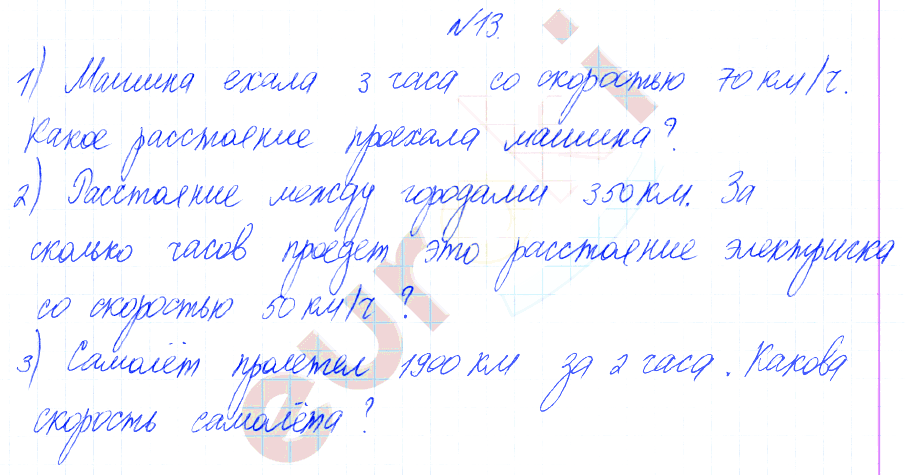 №13.
1) Машина ехала 3 часа со скоростью 70 км/ч.
Какое расстояние проехала машина?
2) Расстояние между городами 350 км. За
сколько часов проедет это расстояние электричка
со скоростью 50 км/ч?
3) Самолёт пролетел 1900 км за 2 часа. Какова
скорость самолёта?
euroki